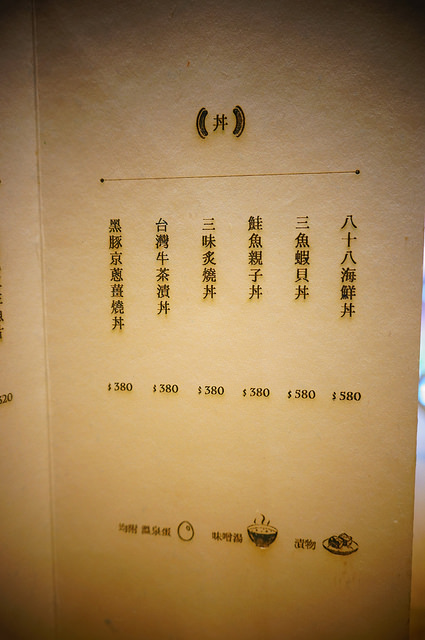 丼
八十八海鮮丼
$580
三魚蝦貝丼
$580
鮭魚親子丼
$380
三味炙燒丼
$380
台灣牛茶漬丼
$380
黑豚京蔥薑燒丼
$380
均附 溫泉蛋
味噌湯
漬物